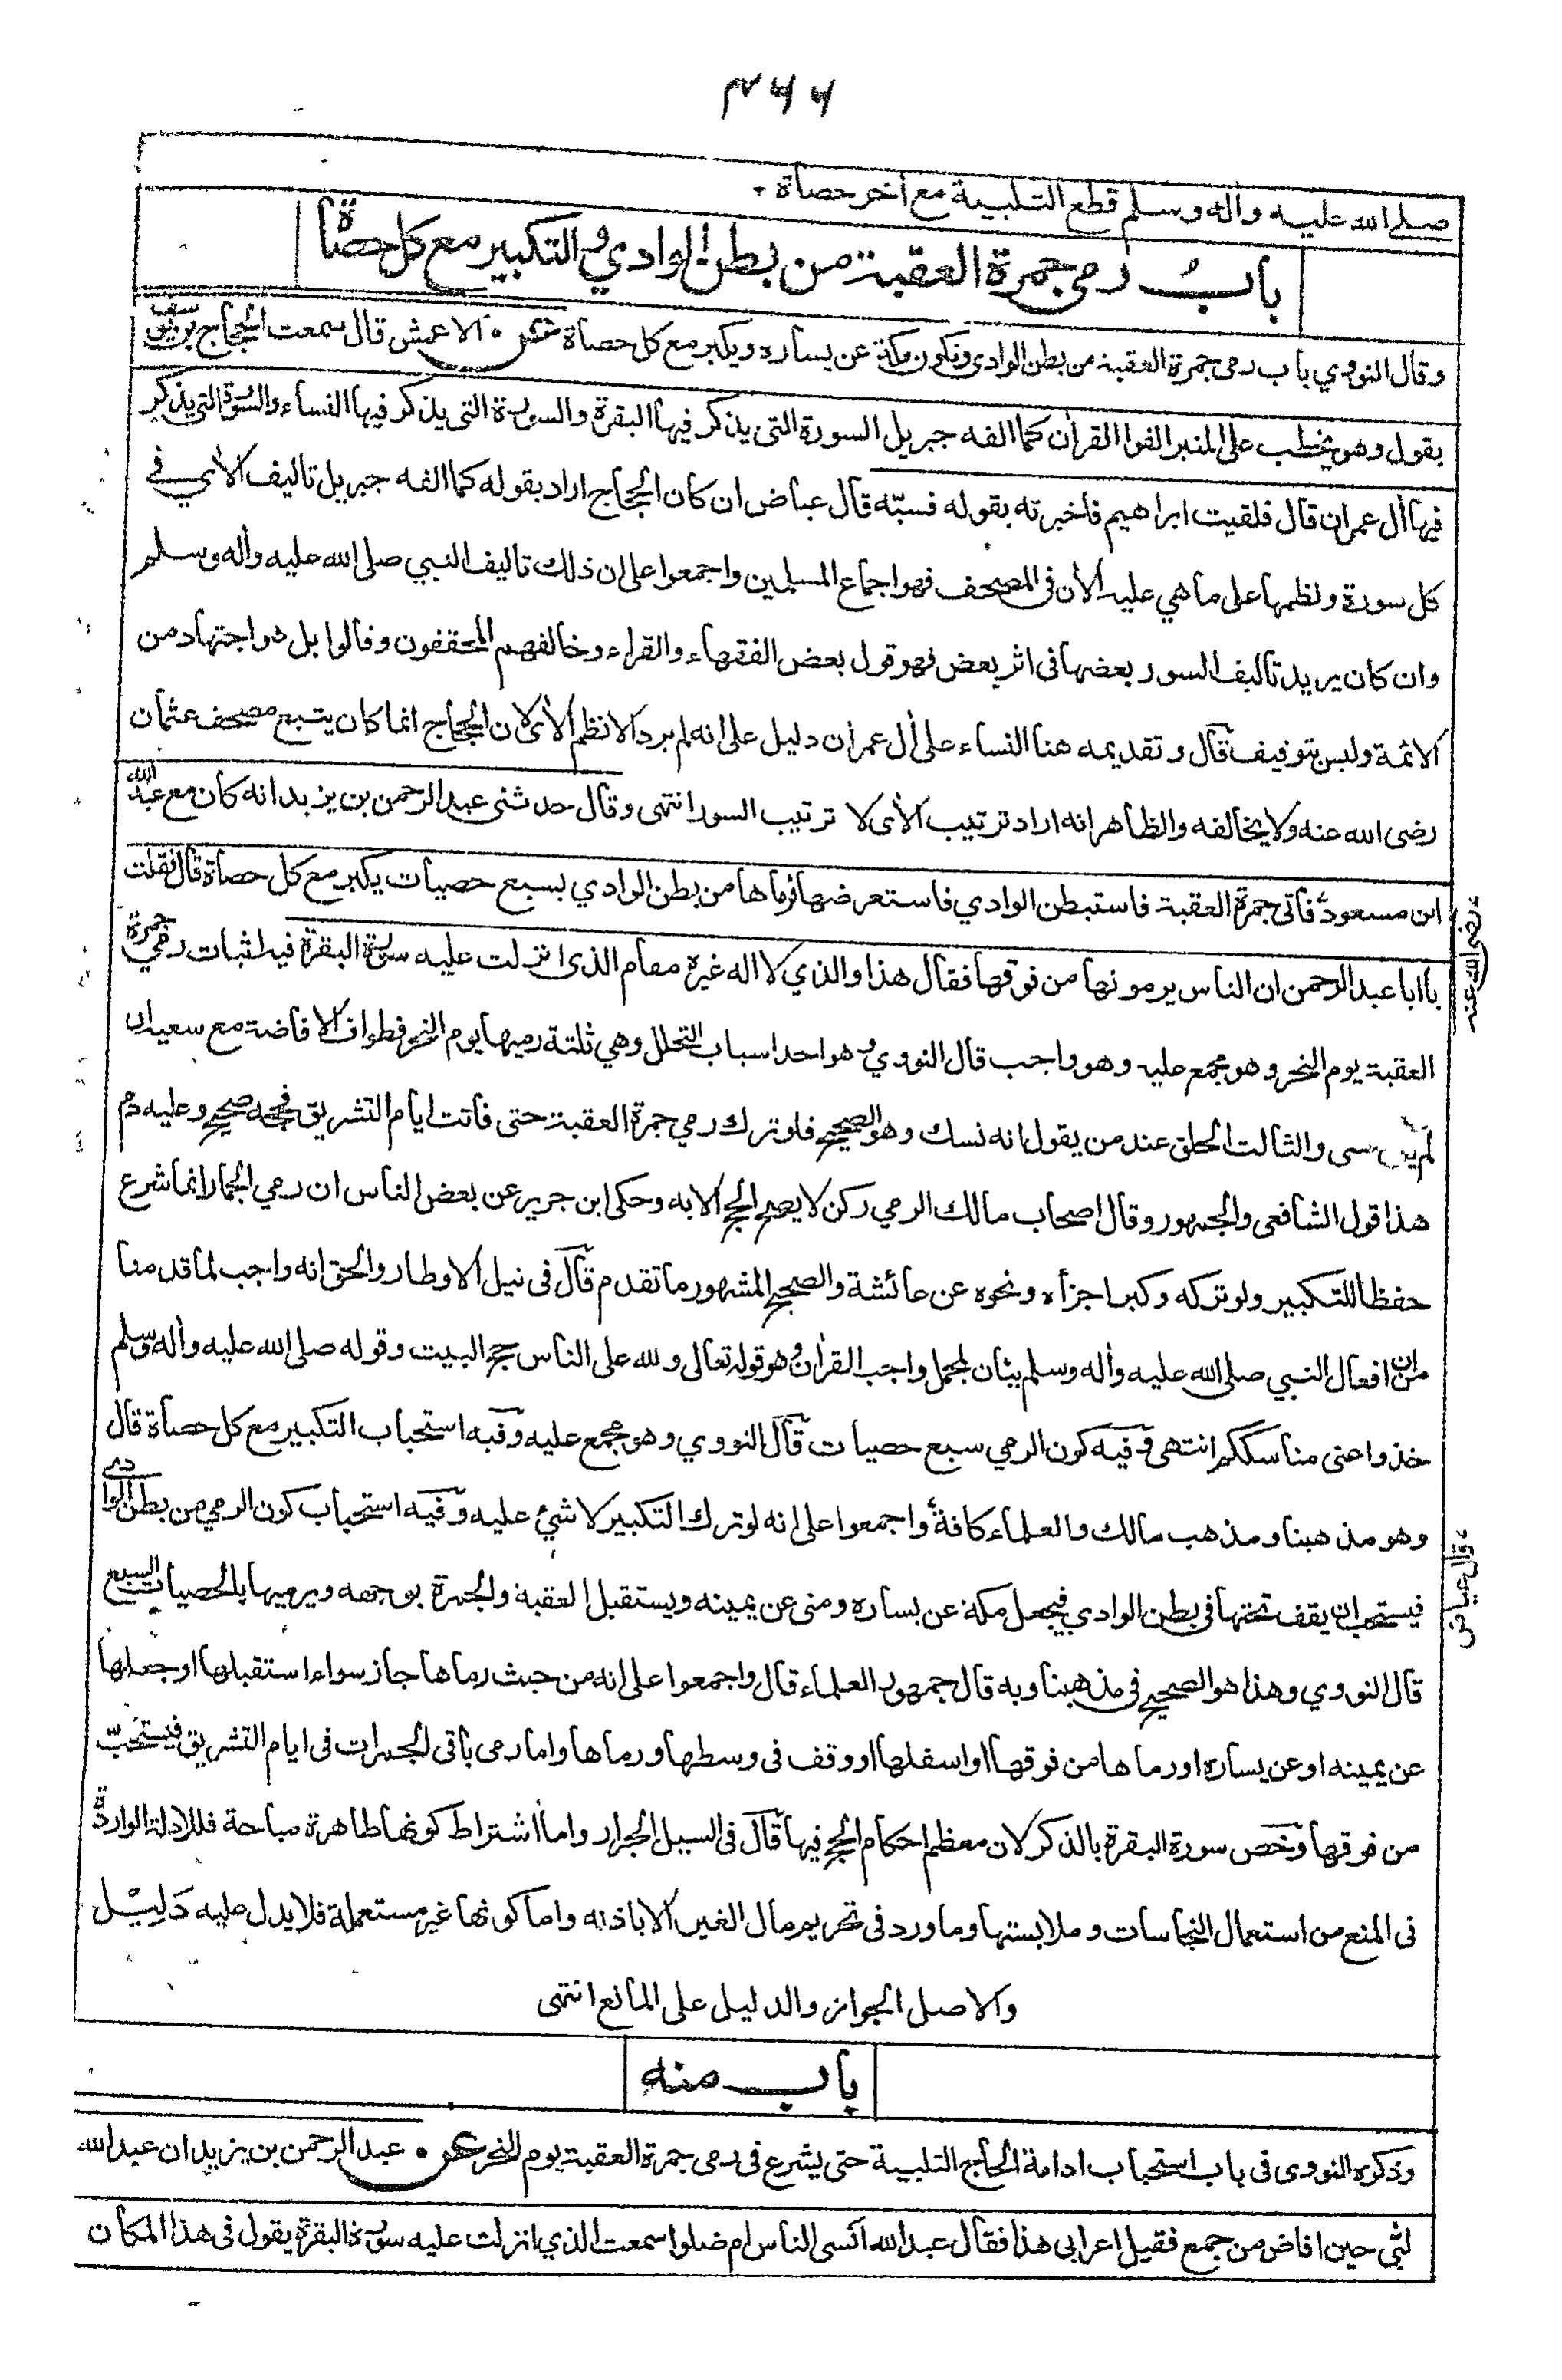 ۴۶۶
صلى الله عليه واله وسلم قطع التلبية مع اخر حصاة
باب رمى جمرة العقبة من بطن الوادي والتكبير مع كل حصاة
وقال النووي باب رمى جمرة العقبة من بطن الوادى وتكون مكة عن يساره ويكبر مع كل حصاة عن الاعمش قال سمعت الحجاج بن يوسف
يقول وهو يخطب على المنبر الفوا القران كما الفه جبريل السورة التى يذكر فيها البقرة والسورة التى يذكر فيها النساء والسورة التى يذكر
فيها اٰل عمران قال فلقيت ابراهيم فاخبرته بقوله فسبّه قال عياض ان كان الحجاج اراد بقوله كما الفه جبريل تاليف الاٰي في
كل سورة ونظمها على ما هي عليه الاٰن فى المصحف فهو اجماع المسلمين واجمعوا على ان ذلك تاليف النبي صلى الله عليه واٰله وسلم
وان كان يريد تاليف السور بعضها فى اثر بعض فهو قول بعض الفقهاء والقراء وخالفهم المحققون وقالوا بل هو اجتهاد من
الائمة وليس بتوقيف قال وتقديمه هنا النساء على اٰل عمران دليل على انه لم يرد الا نظم الاٰى لان الحجاج انما كان يتبع مصحف عثمان
رضى الله عنه ولا يخالفه والظاهر انه اراد ترتيب الاٰى لا ترتيب السور انتهى وقال حدثنى عبد الرحمن بن يزيد انه كان مع عبد الله
ابن مسعود رضى الله عنه فاتى جمرة العقبة فاستبطن الوادي فاستعرضها فرماها من بطن الوادي بسبع حصيات يكبر مع كل حصاة قال فقلت
يا ابا عبد الرحمن ان الناس يرمونها من فوقها فقال هذا والذي لا اله غيره مقام الذى انزلت عليه سورة البقرة فيه اثبات رمي جمرة
العقبة يوم النحر وهو مجمع عليه وهو واجب قال النووي وهو احد اسباب التحلل وهي ثلثة رميها يوم النحر فطواف الافاضة مع سعيه ان
لم يكن سعى والثالث الحلق عند من يقول انه نسك وهو الصحيح فلو ترك رمي جمرة العقبة حتى فاتت ايام التشريق فحجه صحيح وعليه دم
هذا قول الشافعى والجمهور وقال اصحاب مالك الرمي ركن لا يصح الحج الا به وحكى ابن جرير عن بعض الناس ان رمي الجمار انما شرع
حفظا للتكبير ولو تركه وكبر اجزأه ونحوه عن عائشة والصحيح المشهور ما تقدم قال فى نيل الاوطار والحق انه واجب لما قدمنا
من ان افعال النبي صلى الله عليه واٰله وسلم بيان لمجمل واجب القراٰن وهو قوله تعالى ولله على الناس حج البيت وقوله صلى الله عليه واٰله وسلم
خذوا عنى مناسككم انتهى وفيه كون الرمي سبع حصيات قال النووي وهو مجمع عليه وفيه استحباب التكبير مع كل حصاة قال عياض
وهو مذهبنا ومذهب مالك والعلماء كافة واجمعوا على انه لو ترك التكبير لا شئ عليه وفيه استحباب كون الرمي من بطن الوادى
فيستحب ان يقف تحتها فى بطن الوادي فيجعل مكة عن يساره ومنى عن يمينه ويستقبل العقبة والجمرة بوجهه ويرميها بالحصيات السبع
قال النووي وهذا هو الصحيح فى مذهبنا وبه قال جمهور العلماء قال واجمعوا على انه من حيث رماها جاز سواء استقبلها او جعلها
عن يمينه او عن يساره او رماها من فوقها او اسفلها او وقف فى وسطها ورماها واما رمى باقى الجمرات فى ايام التشريق فيستحب
من فوقها وخص سورة البقرة بالذكر لان معظم احكام الحج فيها قال فى السيل الجرار واما اشتراط كونها طاهرة مباحة فللادلة الواردة
فى المنع من استعمال النجاسات وملابستها وما ورد فى تحريم مال الغير الا باذنه واما كونها غير مستعملة فلا يدل عليه دليل
والاصل الجواز والدليل على المانع انتهى
باب منه
وذكره النووى فى باب استحباب ادامة الحاج التلبية حتى يشرع فى رمى جمرة العقبة يوم النحر عن عبد الرحمن بن يزيد ان عبد الله
لبّى حين افاض من جمع فقيل اعرابى هذا فقال عبد الله انسى الناس ام ضلوا سمعت الذي انزلت عليه سورة البقرة يقول فى هذا المكان